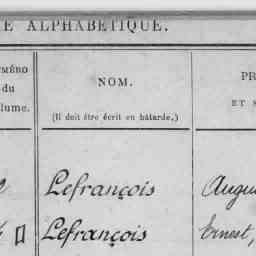 E ALPHABÉTIQUE.
UMÉRO
du
lume.
NOM.
(Il doit être écrit en bâtarde.)
PR
ET S
Lefrançois
Augu
Lefrançois
Ernest,